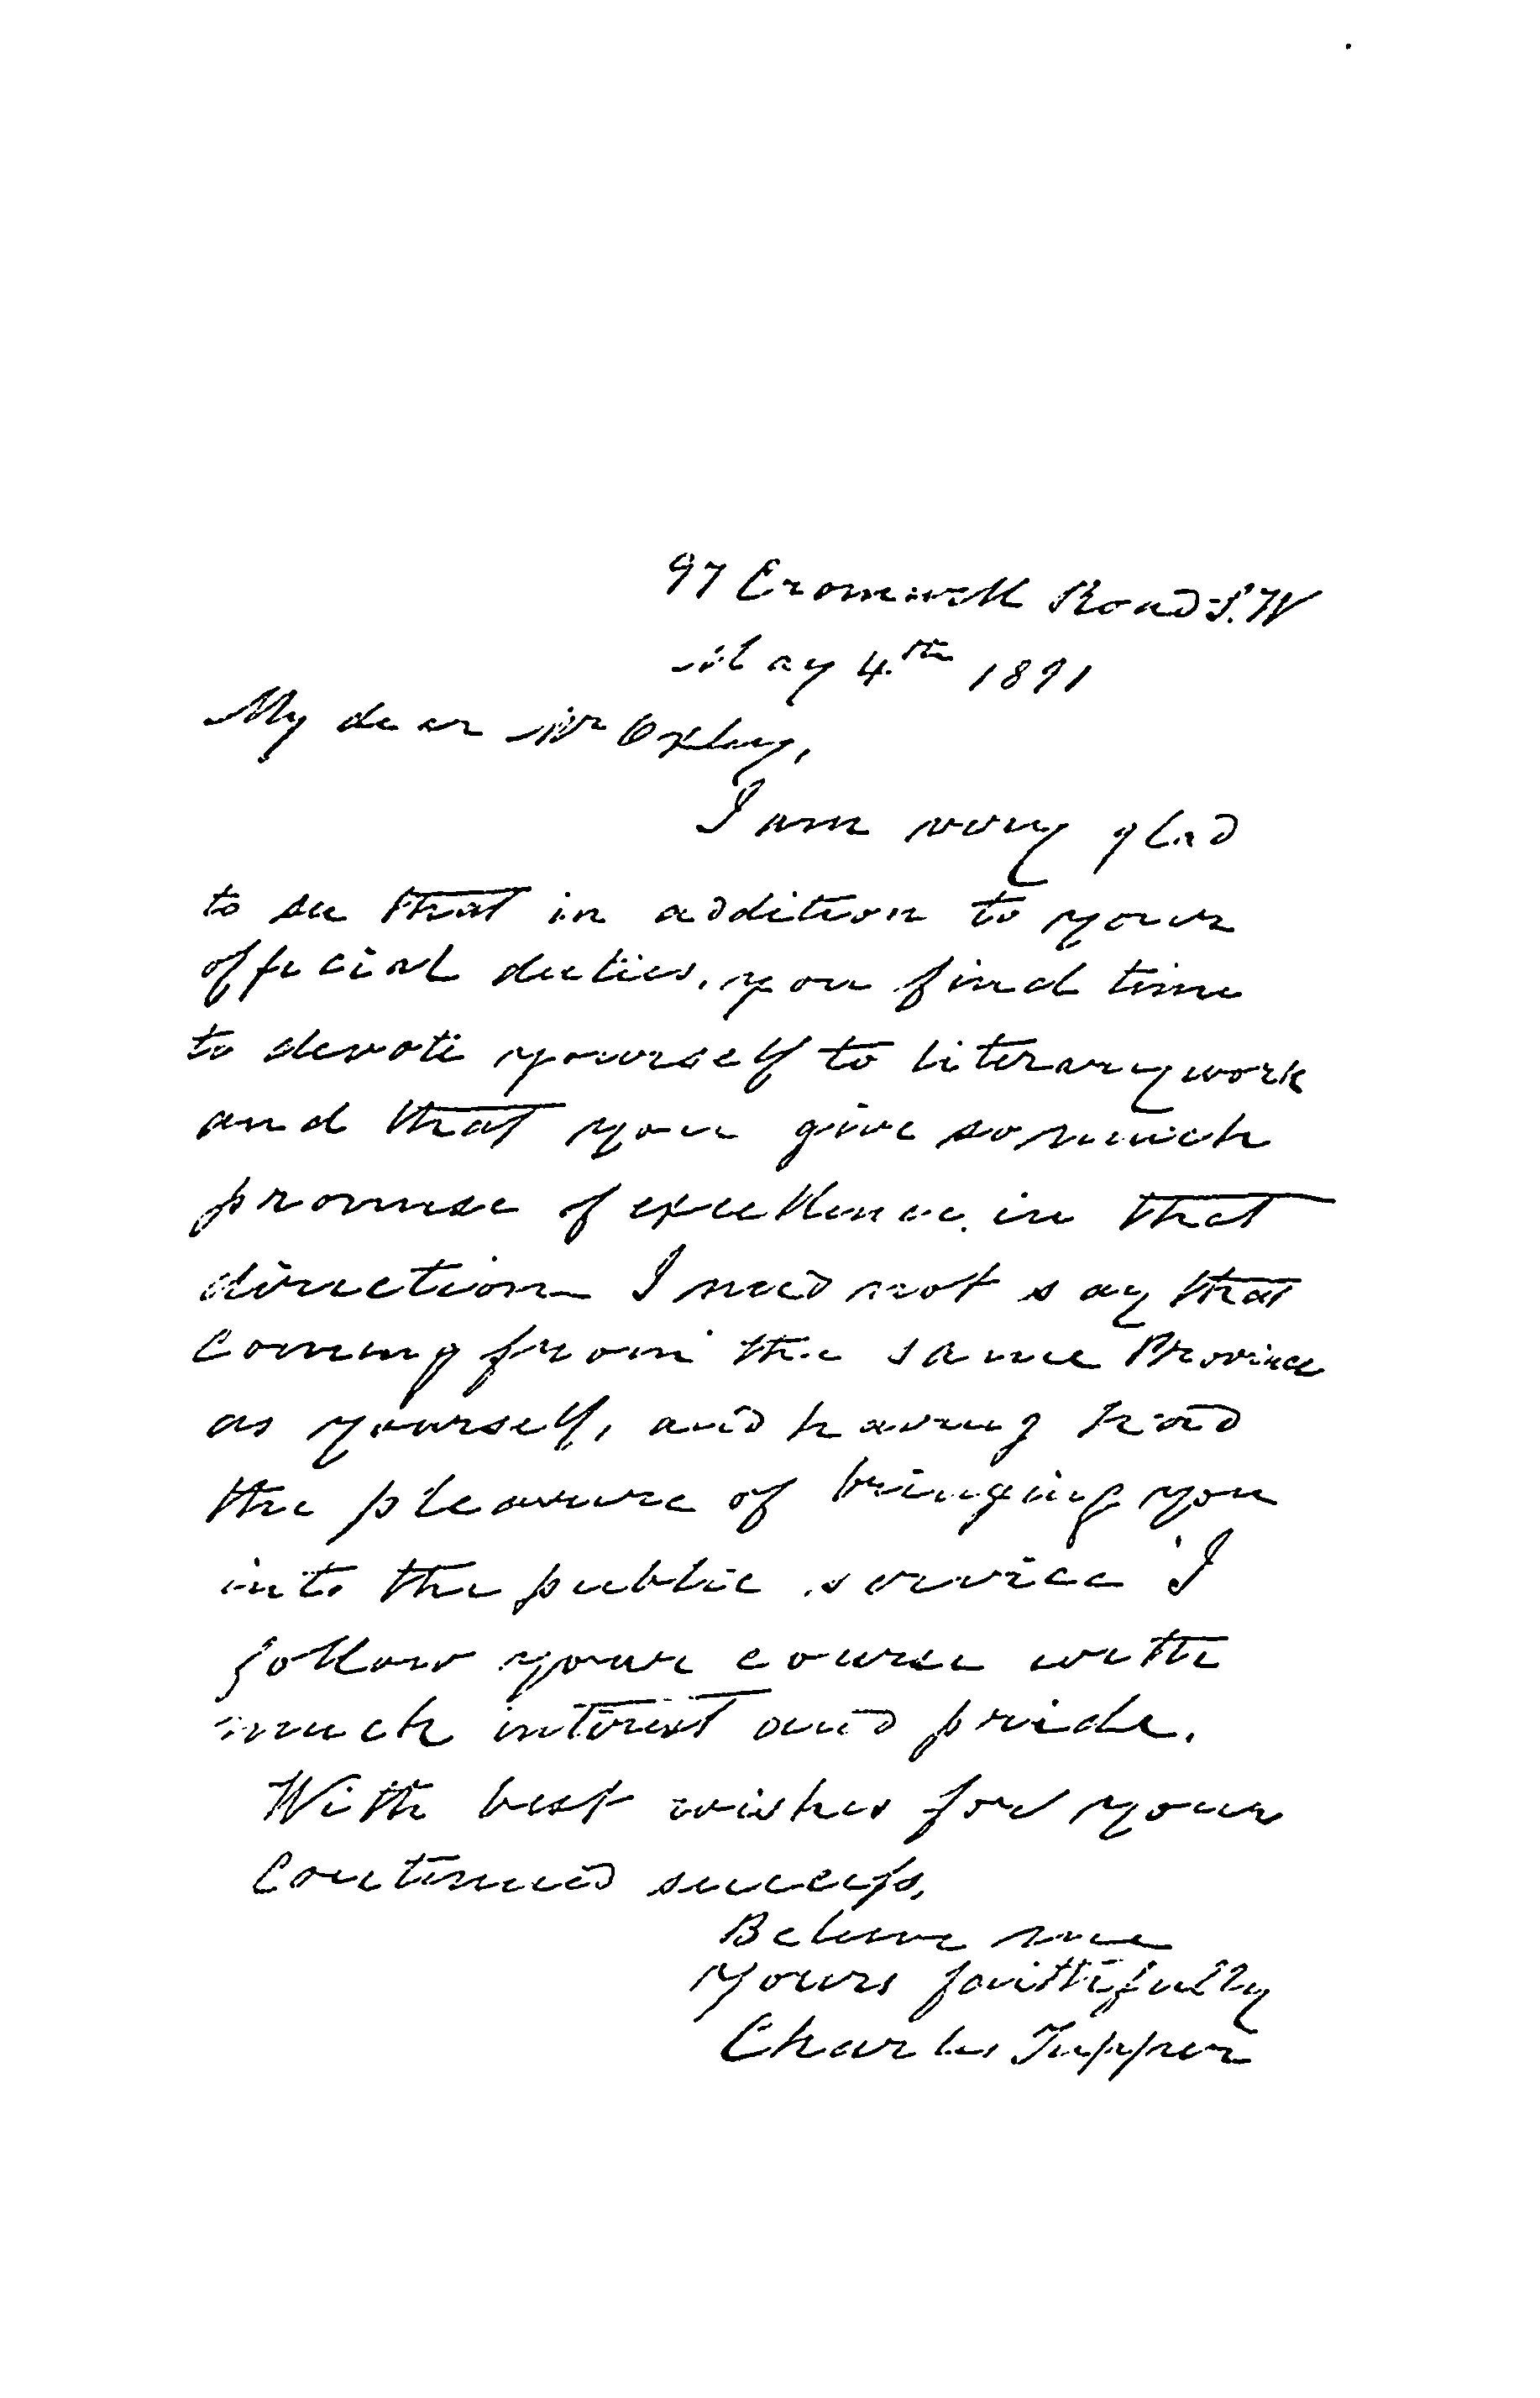 97 Cromwell Road S.W
May 4th 1891
My dear Mr Oxley,
I am very glad
to see that in addition to your
official duties, you find time
to devote yourself to literary work
and that you give so much
promise of excellence in that
direction I need not say that
coming from the same Province
as yourself, and having had
the pleasure of bringing you
into the public service I
follow your course with
much interest and pride.
With best wishes for your
continued success,
Believe me
yours faithfully
Charles Tupper